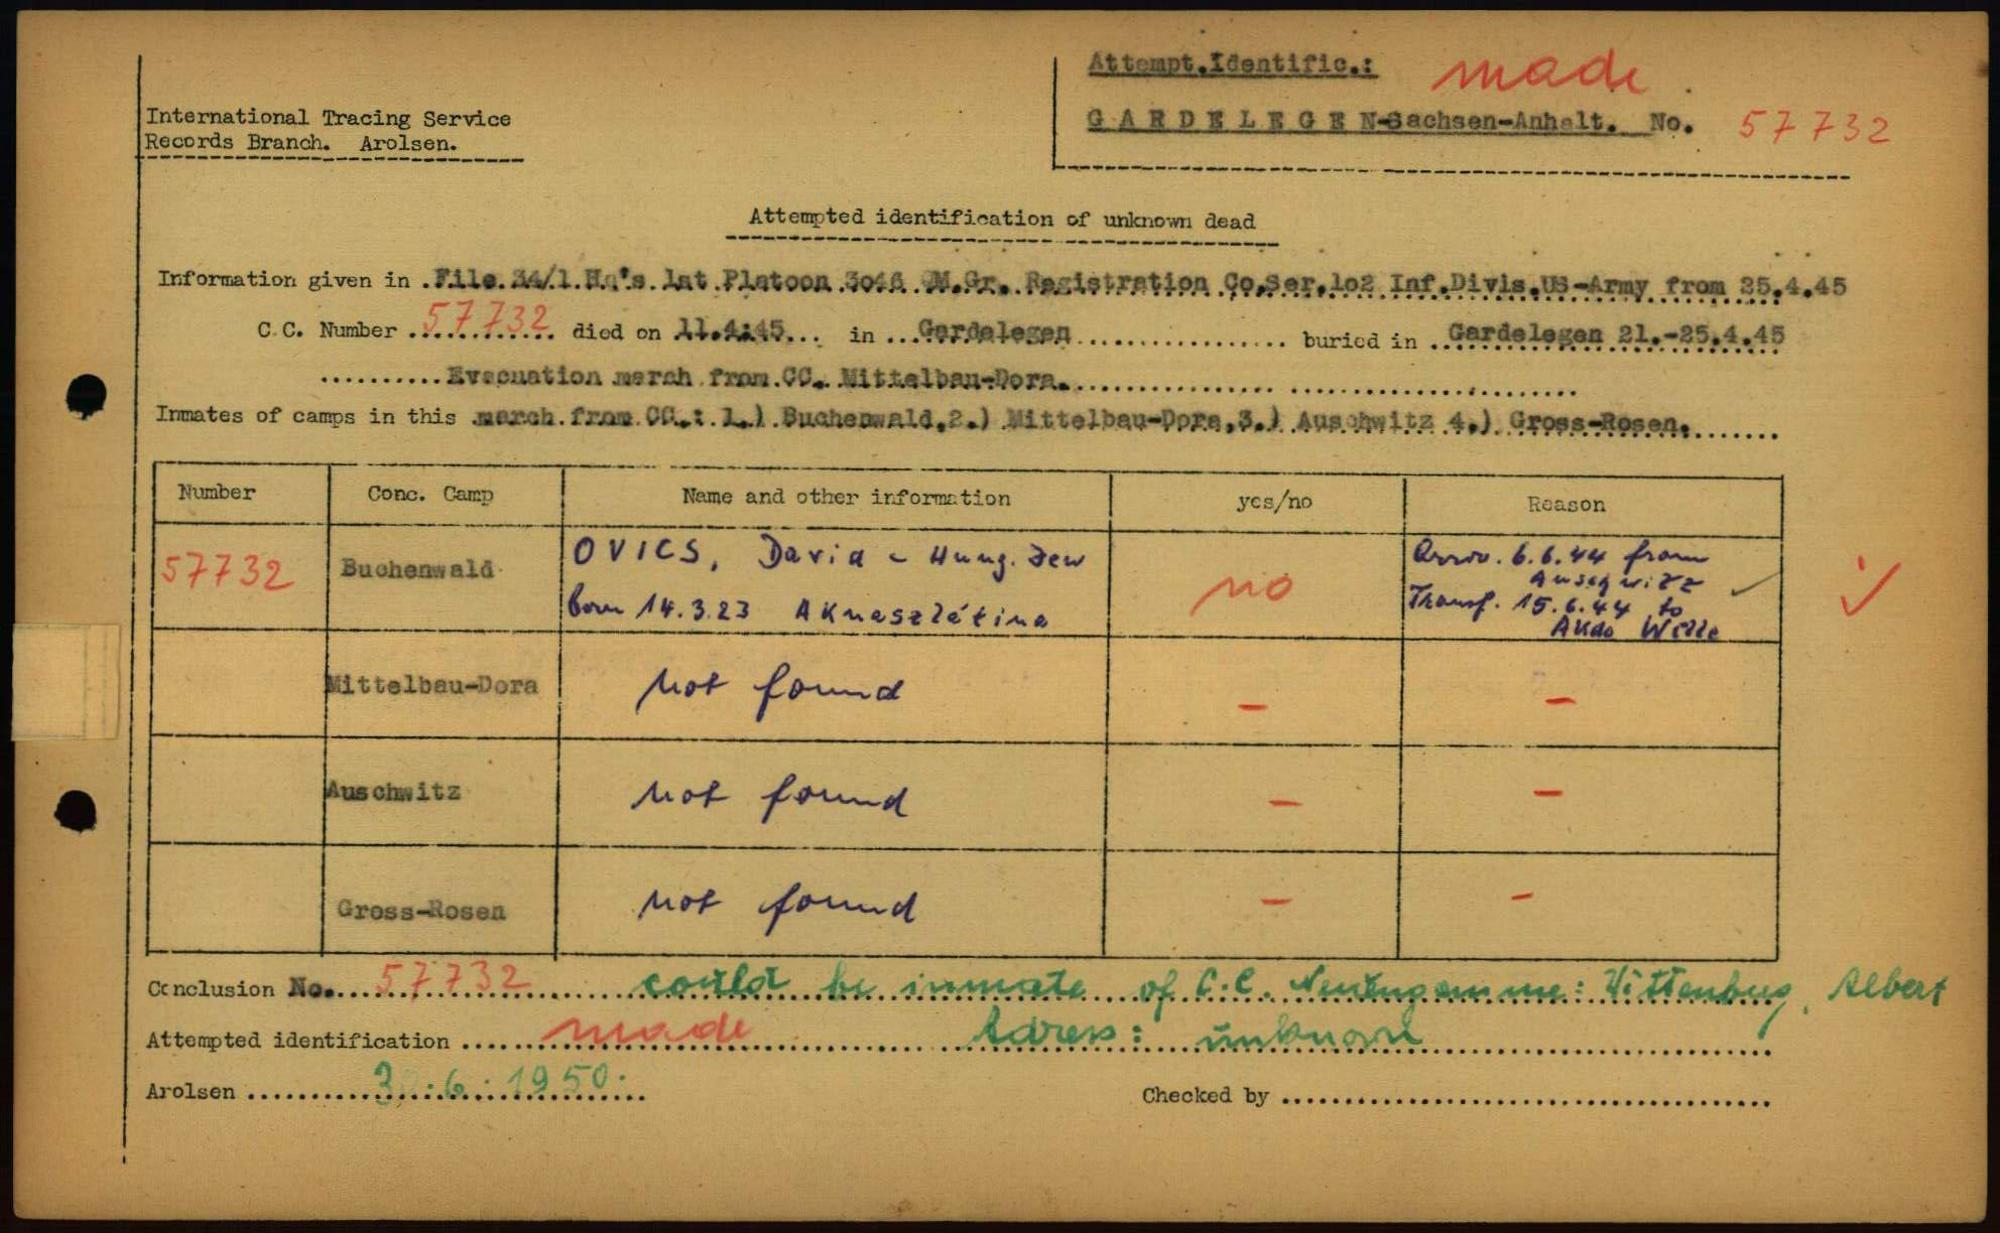 Attempt.Identific.: made
International Tracing Service
Records Branch. Arolsen.
G A R D E L E G E N-Sachsen-Anhalt. No. 57732
Attempted identification of unknown dead
Information given in .File.34/1.Hq's.1st Platoon 3046 QM.Gr. Registration Co.Ser.102 Inf.Divis.US-Army from 25.4.45
C.C. Number 57732 died on 11.4.45... in ...Gardelegen................ buried in ..Gardelegen 21.-25.4.45
..........Evacuation march from CC. Mittelbau-Dora...................
Inmates of camps in this march from CC.: 1.) Buchenwald,2.) Mittelbau-Dora,3.) Auschwitz 4.) Gross-Rosen........
Number Conc. Camp Name and other information yes/no Reason
57732 Buchenwald OVICS, David - Hung. Jew no Arriv. 6.6.44 from
Auschwitz
born 14.3.23 Aknaszlátina Transf. 15.6.44 to
AKdo Wille
Mittelbau-Dora not found - -
Auschwitz not found - -
Gross-Rosen not found - -
Conclusion No. 57732 could be inmate of C.C. Neuengamme: Wittenburg, Albert
Attempted identification made Adress: unknown
Arolsen .6.1950. Checked by ........................